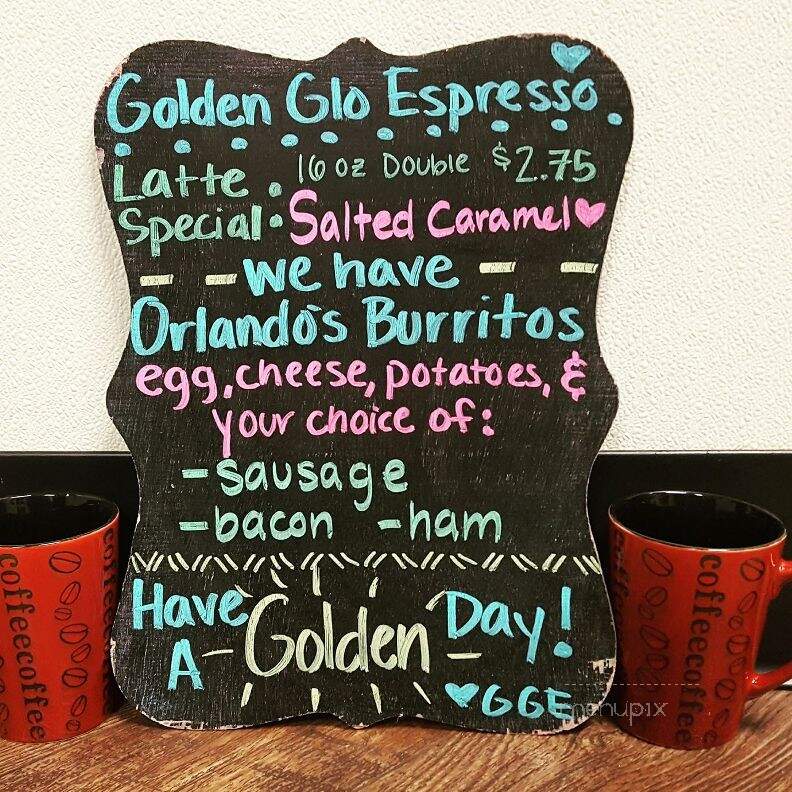 Golden Glo Espresso
Latte . 16 oz Double $2.75
Special • Salted Caramel
we have
Orlando's Burritos
egg, cheese, potatoes, &
your choice of:
- sausage
- bacon - ham
Have A Golden Day!
GGE
menupix
coffeecoffee
coffeecoffee
coffee